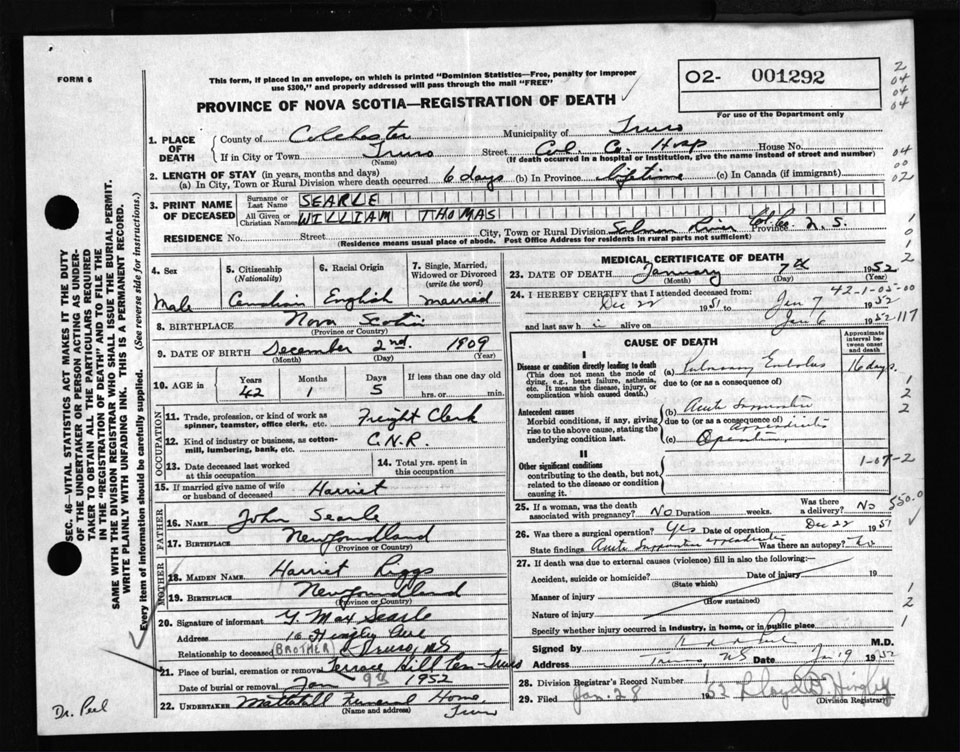 FORM 6
This form, if placed in an envelope, on which is printed "Dominion Statistics—Free, penalty for improper
use $300," and properly addressed will pass through the mail "FREE"
PROVINCE OF NOVA SCOTIA—REGISTRATION OF DEATH
O2- 001292
For use of the Department only
2
04
04
04
04
00
02
1. PLACE OF DEATH
County of Colchester Municipality of Truro
If in City or Town Truro Street Col. Co. Hosp House No.
(Name) (If death occurred in a hospital or institution, give the name instead of street and number)
2. LENGTH OF STAY (in years, months and days)
(a) In City, Town or Rural Division where death occurred 6 days (b) In Province lifetime (c) In Canada (if immigrant)
3. PRINT NAME OF DECEASED
Surname or Last Name SEARLE
All Given or Christian Names WILLIAM THOMAS
RESIDENCE No. Street City, Town or Rural Division Salmon River Col. Co. Province N.S.
(Residence means usual place of abode. Post Office Address for residents in rural parts not sufficient)
4. Sex
Male
5. Citizenship
(Nationality)
Canadian
6. Racial Origin
English
7. Single, Married,
Widowed or Divorced
(write the word)
married
8. BIRTHPLACE Nova Scotia
(Province or Country)
9. DATE OF BIRTH December 2nd. 1909
(Month) (Day) (Year)
10. AGE in Years Months Days If less than one day old
42 1 5 hrs. or min.
OCCUPATION
11. Trade, profession, or kind of work as
spinner, teamster, office clerk, etc. Freight Clerk
12. Kind of industry or business, as cotton-
mill, lumbering, bank, etc. C.N.R.
13. Date deceased last worked
at this occupation
14. Total yrs. spent in
this occupation
15. If married give name of wife
or husband of deceased Harriet
FATHER
16. NAME John Searle
17. BIRTHPLACE Newfoundland
(Province or Country)
MOTHER
18. MAIDEN NAME Harriet Riggs
19. BIRTHPLACE Newfoundland
(Province or Country)
20. Signature of informant Y. Max Searle
Address 16 Hingley Ave
Relationship to deceased BROTHER Truro, NS
21. Place of burial, cremation or removal Terrace Hill Cem-Truro
Date of burial or removal Jan 9th 1952
22. UNDERTAKER Mattatall Funeral Home,
(Name and address) Truro
MEDICAL CERTIFICATE OF DEATH
23. DATE OF DEATH January 7th 1952
(Month) (Day) (Year)
42-1-05-00
24. I HEREBY CERTIFY that I attended deceased from:
Dec 22 1951 to Jan 7 1952
and last saw him alive on Jan 6 1952 117
CAUSE OF DEATH
Approximate
interval between
onset
and death
I
Disease or condition directly leading to death
(This does not mean the mode of
dying, e.g., heart failure, asthenia,
etc. It means the disease, injury, or
complication which caused death.)
(a) Pulmonary Embolus 16 days.
due to (or as a consequence of)
Antecedent causes
Morbid conditions, if any, giving
rise to the above cause, stating the
underlying condition last.
(b) Acute Suppurative
due to (or as a consequence of) Appendicitis
(c) Operation
II
Other significant conditions
contributing to the death, but not
related to the disease or condition
causing it.
1-07-2
25. If a woman, was the death
associated with pregnancy? No Duration weeks. Was there
a delivery? No
550.0
26. Was there a surgical operation? Yes Date of operation Dec 22 1951
State findings Acute Suppurative appendicitis Was there an autopsy? No
27. If death was due to external causes (violence) fill in also the following:—
Accident, suicide or homicide? Date of injury 19
(State which)
Manner of injury
(How sustained)
Nature of injury
Specify whether injury occurred in industry, in home, or in public place
Signed by M.D.
Address Truro, NS Date Jan 19 1952
28. Division Registrar's Record Number 1
29. Filed Jan. 28 1952 Lloyd B. Hingley
(Division Registrar)
SEC. 46—VITAL STATISTICS ACT MAKES IT THE DUTY
OF THE UNDERTAKER OR PERSON ACTING AS UNDER-
TAKER TO OBTAIN ALL THE PARTICULARS REQUIRED
IN THE "REGISTRATION OF DEATH" AND TO FILE THE
SAME WITH THE DIVISION REGISTRAR WHO SHALL ISSUE THE BURIAL PERMIT.
WRITE PLAINLY WITH UNFADING INK. THIS IS A PERMANENT RECORD.
Every item of information should be carefully supplied. (See reverse side for instructions.)
Dr. Peel